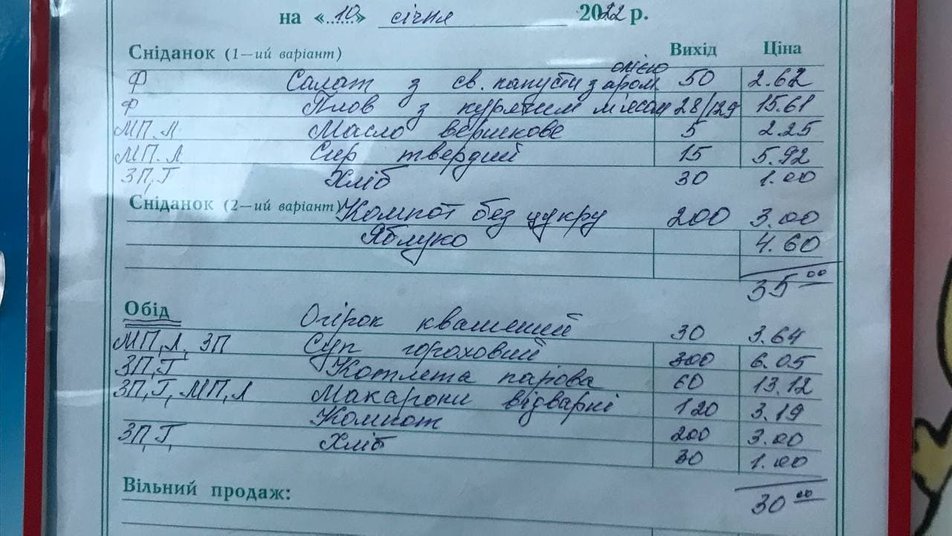 на «10» січня 2022 р.
Сніданок (1—ий варіант) Вихід Ціна
Ф Салат з св. капусти з аром. олією 50 2.62
Ф Плов з курячим м'ясом 28/129 15.61
МП.Л Масло вершкове 5 2.25
МП.Л Сир твердий 15 5.92
ЗП,Г Хліб 30 1.00
Сніданок (2—ий варіант) Компот без цукру 200 3.00
Яблуко 4.60
35.00
Обід Огірок квашений 30 3.64
МП,Л, ЗП Суп гороховий 300 6.05
ЗП,Г Котлета парова 60 13.12
ЗП,Г, МП,Л Макарони відварні 120 3.19
Компот 200 3.00
ЗП,Г, Хліб 30 1.00
30.00
Вільний продаж: